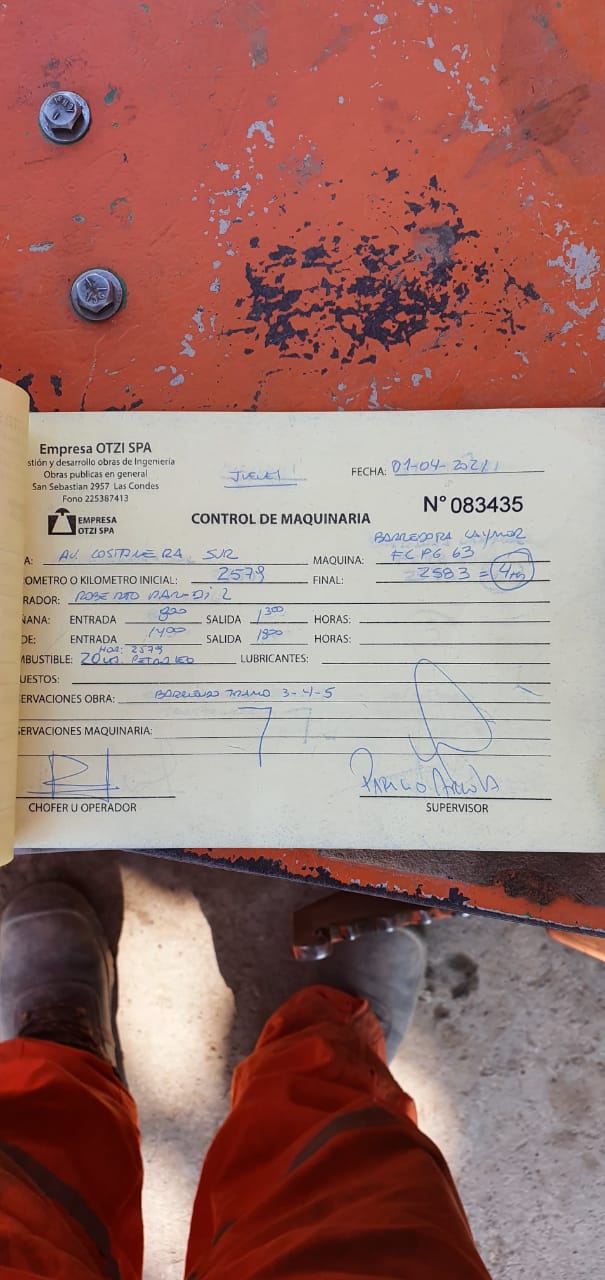 Empresa OTZI SPA
stión y desarrollo obras de Ingeniería
Obras publicas en general
San Sebastian 2957 Las Condes
Fono 225387413
EMPRESA
OTZI SPA
JUEVES
FECHA: 01-04-2021
N° 083435
CONTROL DE MAQUINARIA
BARREDORA LAYMOR
A: AV. COSTANERA SUR MAQUINA: FCPG 63
OMETRO O KILOMETRO INICIAL: 2579 FINAL: 2583 = 4 hrs
RADOR: ROBERTO PAREDIZ
ÑANA: ENTRADA 800 SALIDA 1300 HORAS:
DE: ENTRADA 1400 SALIDA 1800 HORAS:
HOR: 2579
MBUSTIBLE: 20 LTS. PETROLEO LUBRICANTES:
UESTOS:
ERVACIONES OBRA: BARRIENDO TRAMO 3-4-5
SERVACIONES MAQUINARIA:
CHOFER U OPERADOR
SUPERVISOR